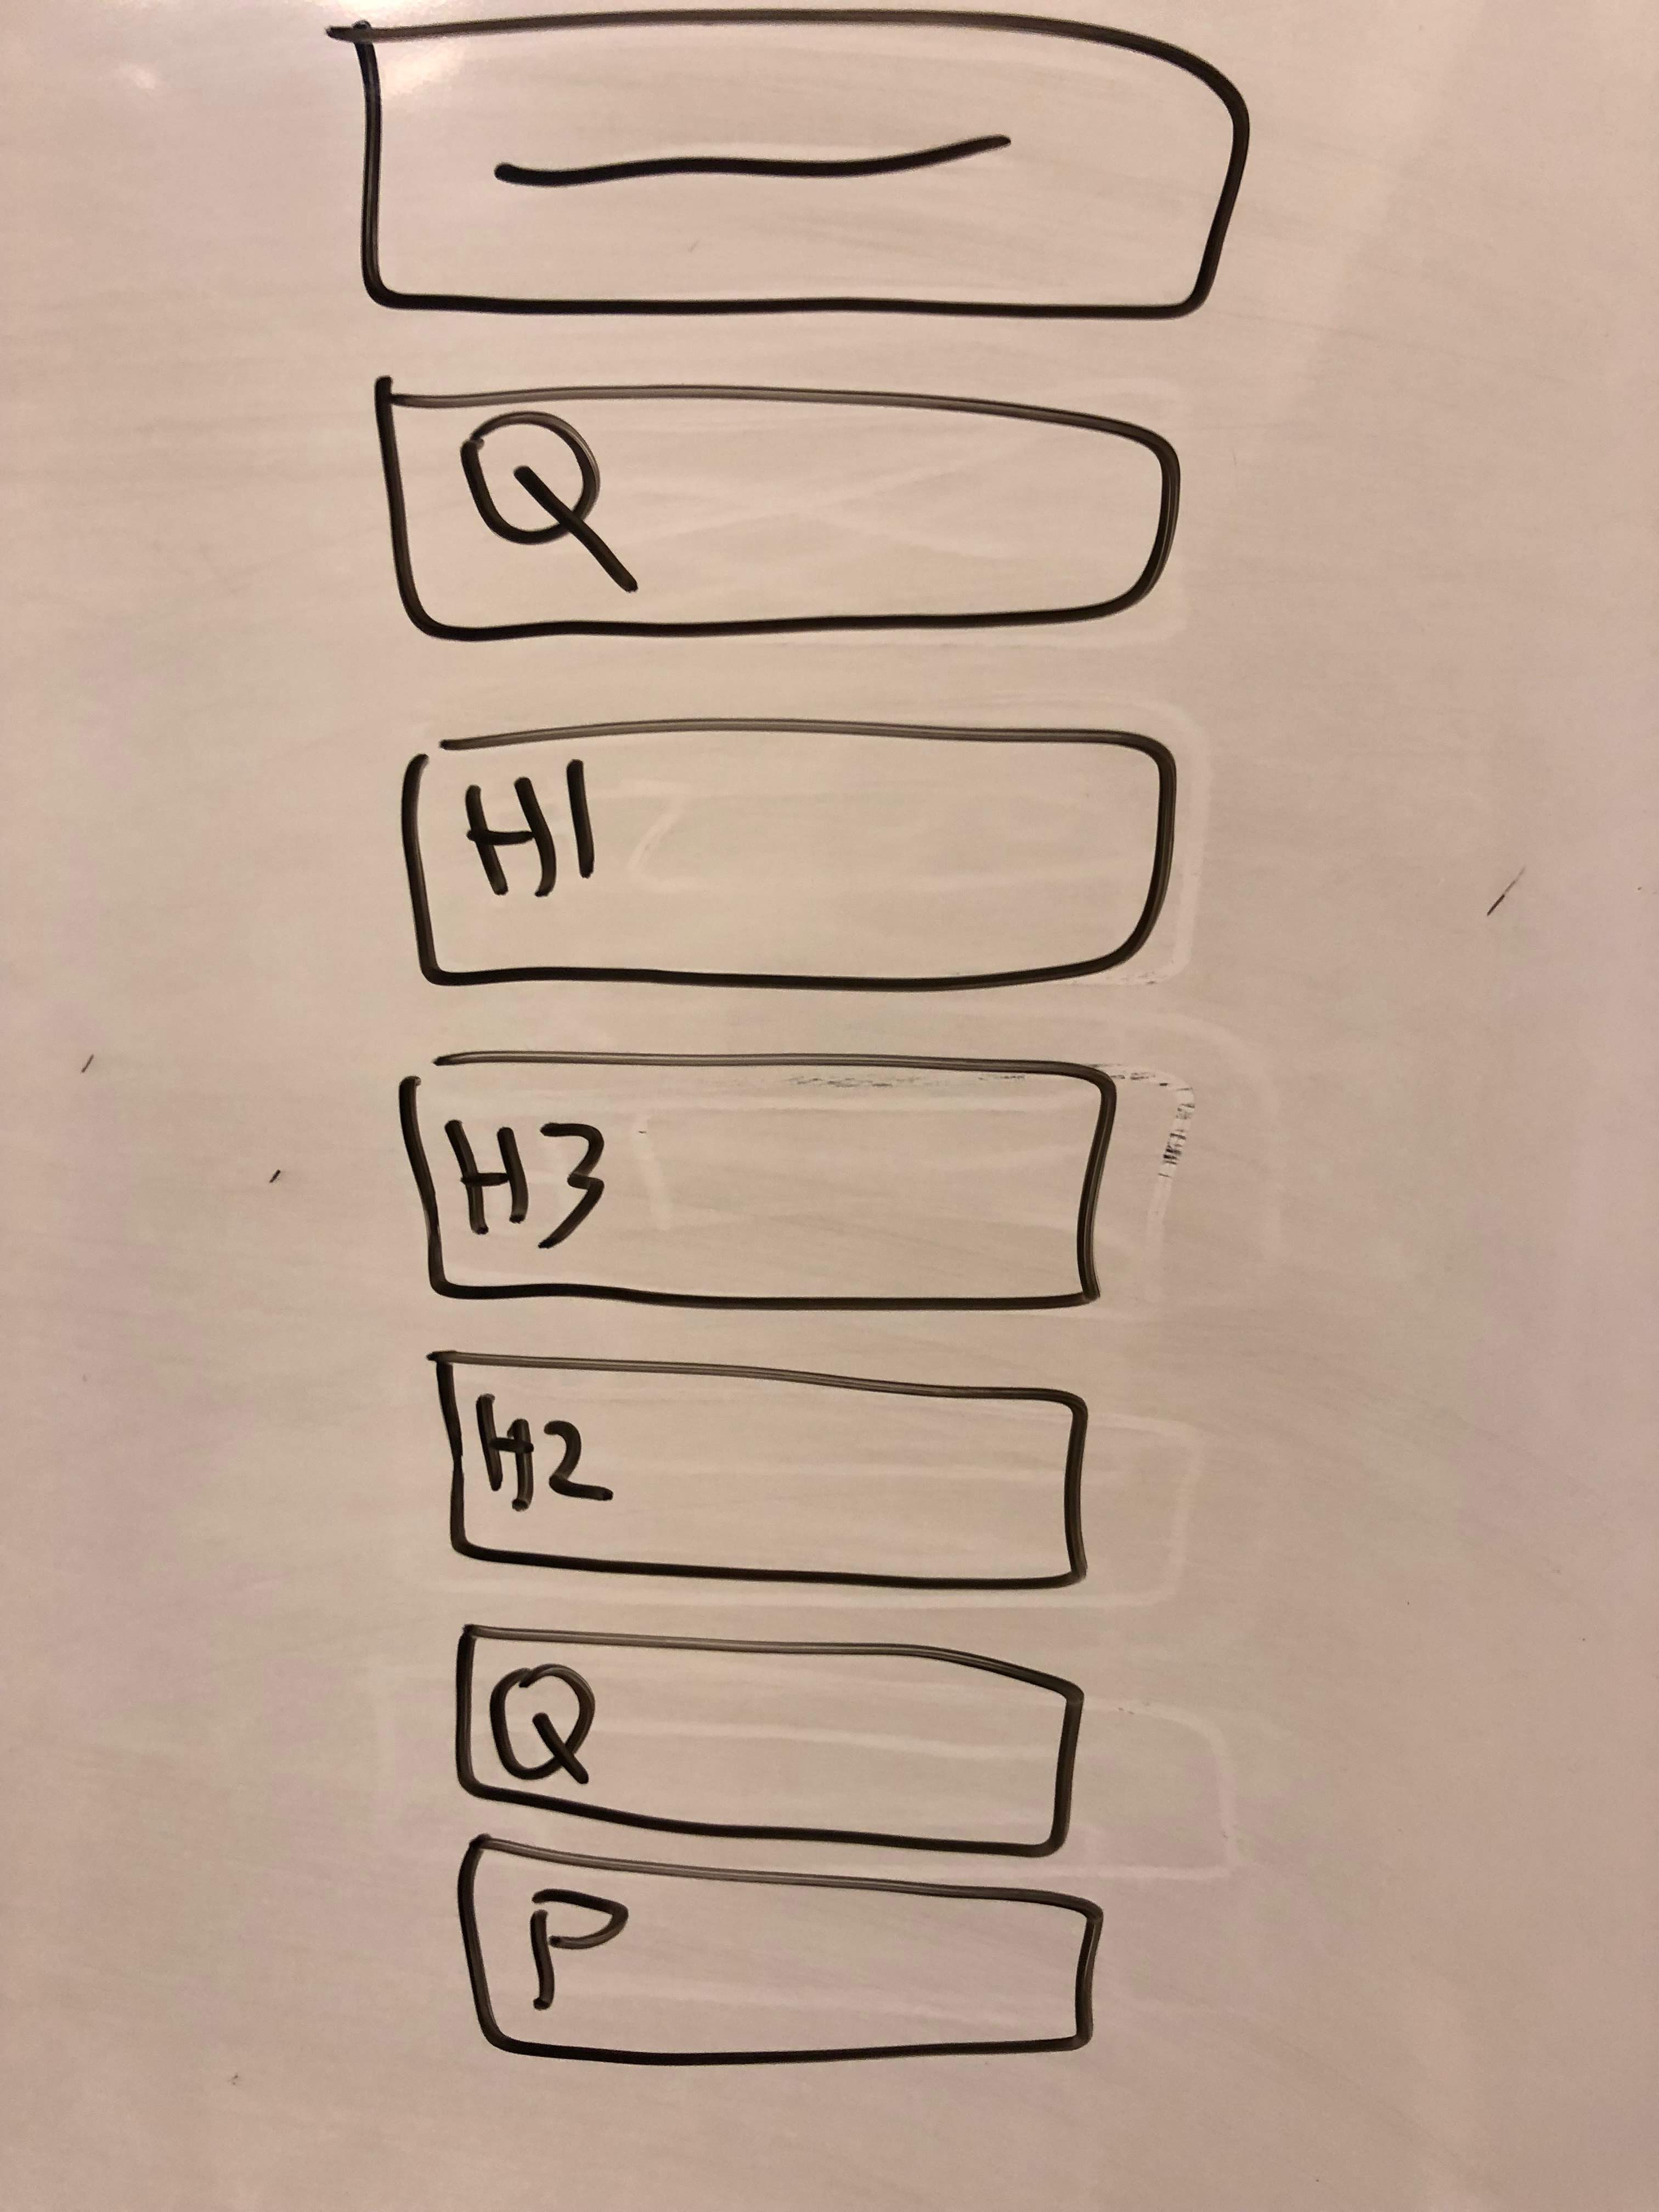 Q
H1
H3
H2
Q
P